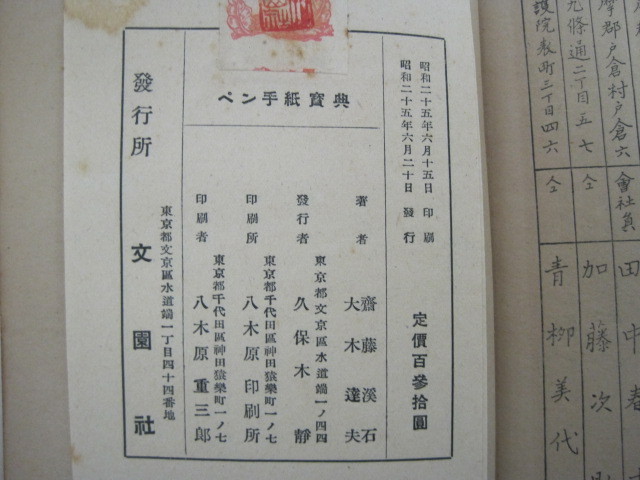 摩郡戶倉村戶倉六
九條通二丁目五七
護院敎町三丁目四六
會社員
仝
仝
田中春
加藤次
靑柳美代
ペン手紙寶典
昭和二十五年六月十五日 印刷
昭和二十五年六月二十日 發行
定價百參拾圓
著者 齋藤溪石
大木達夫
東京都文京區水道端一ノ四四
發行者 久保木靜
東京都千代田區神田猿樂町一ノ七
印刷所 八木原印刷所
東京都千代田區神田猿樂町一ノ七
印刷者 八木原重三郎
發行所
東京都文京區水道端一丁目四十四番地
文園社